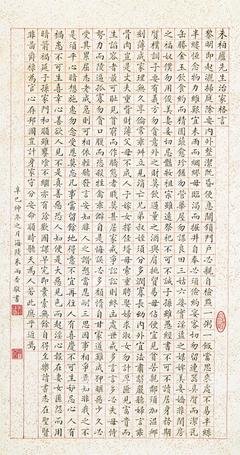 朱柏廬先生治家格言
黎明即起灑掃庭除要內外整潔既昏便息關鎖門戶必親自檢點一粥一飯當思來處不易半絲
半縷恆念物力維艱宜未雨而綢繆毋臨渴而掘井自奉必須儉約宴客切勿留連器具質而潔瓦
缶勝金玉飲食約而精園蔬愈珍饈勿營華屋勿謀良田三姑六婆實淫盜之媒婢美妾嬌非閨房
之福奴僕勿用俊美妻妾切忌艷妝祖宗雖遠祭祀不可不誠子孫雖愚經書不可不讀居身務期
質樸教子要有義方勿貪意外之財勿飲過量之酒與肩挑貿易勿佔便宜見貧苦親鄰須加溫恤
刻薄成家理無久享倫常乖舛立見消亡兄弟叔姪須分多潤寡長幼內外宜法肅辭嚴聽婦言乖
骨肉豈是丈夫重資財薄父母不成人子嫁女擇佳婿毋索重聘娶媳求淑女勿計厚奩見富貴而
生諂容者最可恥遇貧窮而作驕態者賤莫甚居家戒爭訟訟則終凶處世戒多言言多必失毋恃
勢力而凌逼孤寡毋貪口腹而恣殺生禽乖僻自是悔誤必多頹惰自甘家道難成狎暱惡少久必
受其累屈志老成急則可相依輕聽發言安知非人之譖愬當忍耐三思因事相爭焉知非我之不
是須平心暗想施惠無念受恩莫忘凡事當留餘地得意不宜再往人有喜慶不可生妒忌心人有
禍患不可生喜幸心善欲人見不是真善惡恐人知便是大惡見色而起淫心報在妻女匿怨而用
暗箭禍延子孫家門和順雖饔飧不繼亦有餘歡國課早完即囊橐無餘自得至樂讀書志在聖賢
為官心存君國守分安命順時聽天為人若此庶乎近焉
辛巳仲冬之月海陵朱雨香敬書